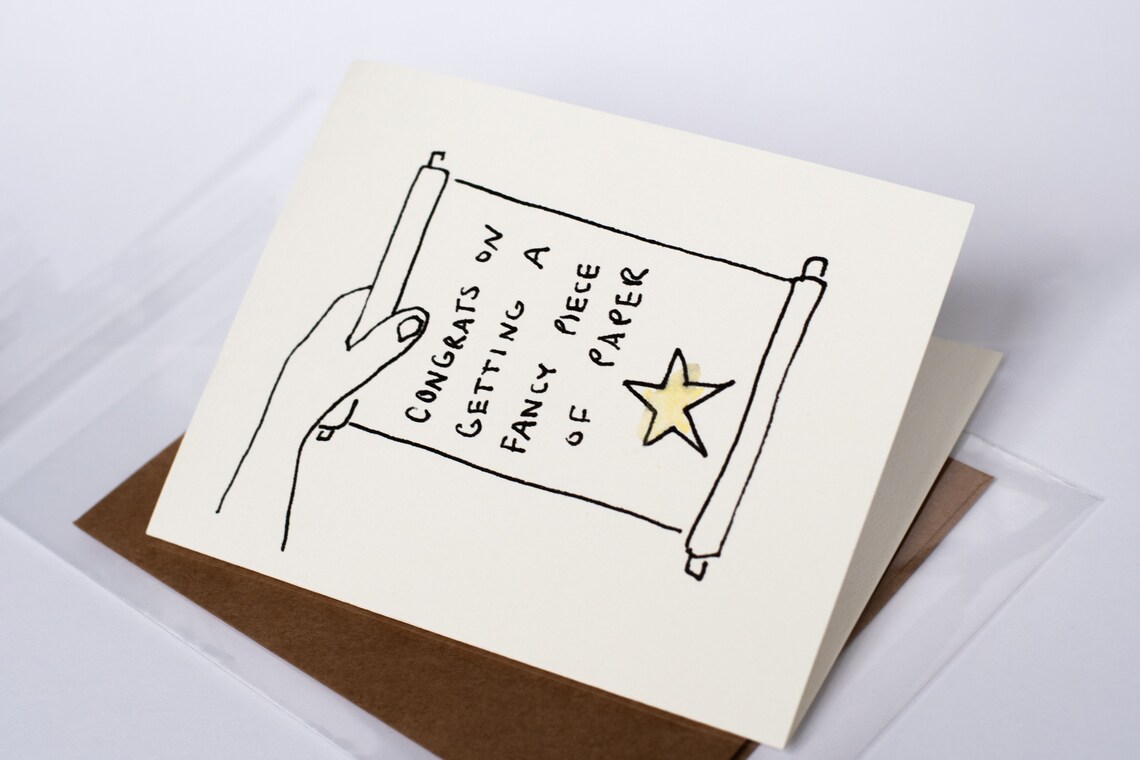 CONGRATS ON
GETTING A
FANCY PIECE
OF PAPER